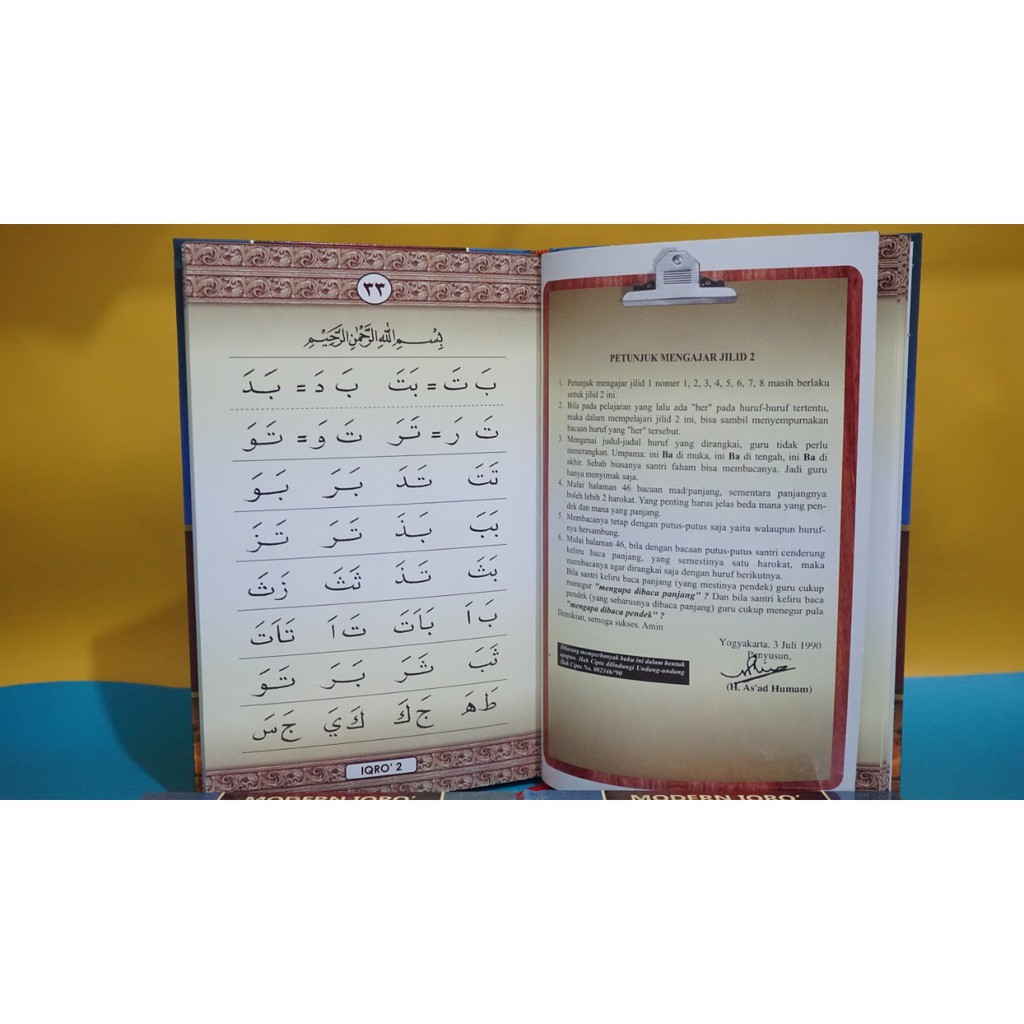 ٣٣
بِسْمِ اللهِ الرَّحْمٰنِ الرَّحِيْمِ
بَ تَ = بَتَ بَ دَ = بَدَ
تَ رَ = تَرَ تَ وَ = تَوَ
تَتَ تَدَ بَرَ بَوَ
بَبَ بَذَ تَرَ تَزَ
بَثَ تَذَ ثَثَ زَثَ
بَ اَ بَاَتَ تَ اَ تَاَتَ
ثَبَ ثَرَ بَرَ تَوَ
طَ هَ جَ كَ كَ يَ جَ سَ
IQRO' 2
PETUNJUK MENGAJAR JILID 2
1. Petunjuk mengajar jilid 1 nomer 1, 2, 3, 4, 5, 6, 7, 8 masih berlaku
untuk jilid 2 ini.
2. Bila pada pelajaran yang lalu ada "her" pada huruf-huruf tertentu,
maka dalam mempelajari jilid 2 ini, bisa sambil menyempurnakan
bacaan huruf yang "her" tersebut.
3. Mengenai judul-judul huruf yang dirangkai, guru tidak perlu
menerangkan. Umpama: ini Ba di muka, ini Ba di tengah, ini Ba di
akhir. Sebab biasanya santri faham bisa membacanya. Jadi guru
hanya menyimak saja.
4. Mulai halaman 46 bacaan mad/panjang, sementara panjangnya
boleh lebih 2 harokat. Yang penting harus jelas beda mana yang pen-
dek dan mana yang panjang.
5. Membacanya tetap dengan putus-putus saja yaitu walaupun huruf-
nya bersambung.
6. Mulai halaman 46, bila dengan bacaan putus-putus santri cenderung
keliru baca panjang, yang semestinya satu harokat, maka
membacanya agar dirangkai saja dengan huruf berikutnya.
Bila santri keliru baca panjang (yang mestinya pendek) guru cukup
menegur "mengapa dibaca panjang" ? Dan bila santri keliru baca
pendek (yang seharusnya dibaca panjang) guru cukup menegur pula
"mengapa dibaca pendek" ?
Demikian, semoga sukses. Amin
Yogyakarta, 3 Juli 1990
Penyusun,
(H. As'ad Humam)
Dilarang memperbanyak buku ini dalam bentuk
apapun. Hak Cipta dilindungi Undang-undang
Hak Cipta No. 002346/'90
MODERN IQRO'
MODERN IQRO'